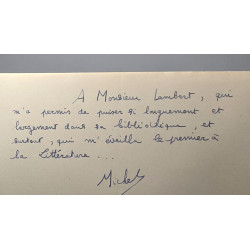 A Monsieur Lambert, qui
m'a permis de puiser si longuement et
largement dans sa bibliothèque, et
surtout, qui m'éveilla le premier à
la littérature...
Michel